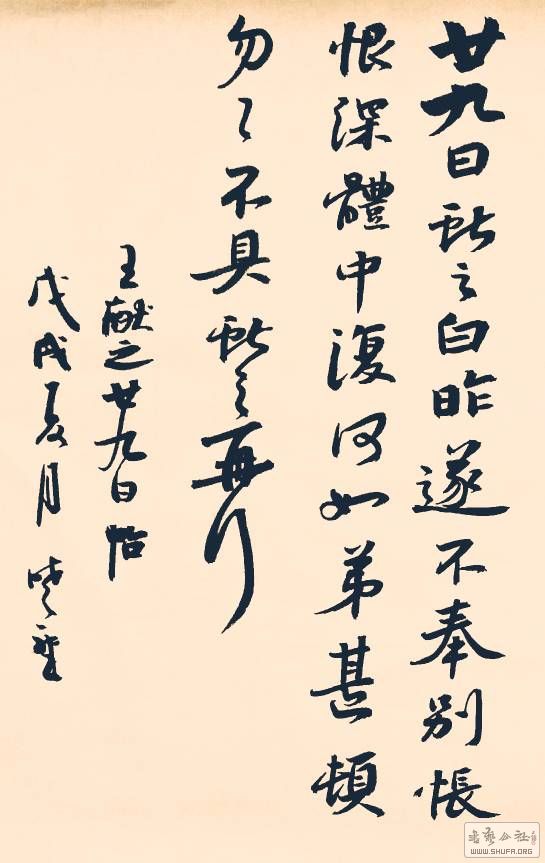 廿九日献之白昨遂不奉别悵
恨深體中復何如弟甚頓
勿〻不具献之再行
王献之廿九日帖
戊戌夏月
WWW.SHUFA.ORG